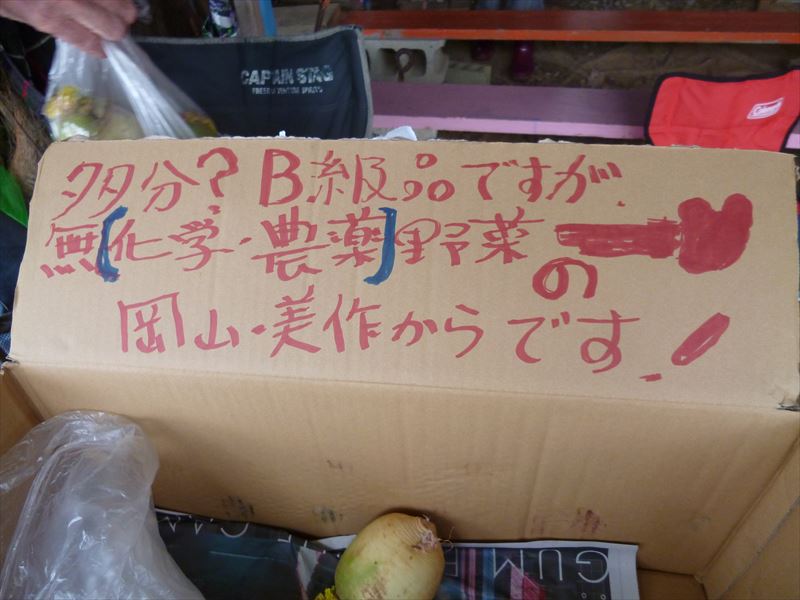 CAPTAIN STAG
Coleman
多分?B級品ですが、
無[化学・農薬]野菜
の
岡山・美作からです!
GUM